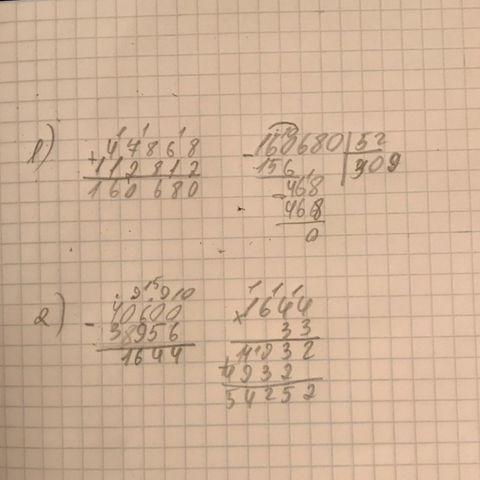 1)
1 1 1
+ 47868
112812
160680
- 160680 | 52
156 | 909
- 468
468
0
2)
9 15 9 10
- 40600
38956
1644
1 1 1
× 1644
33
+ 4932
4932
54252